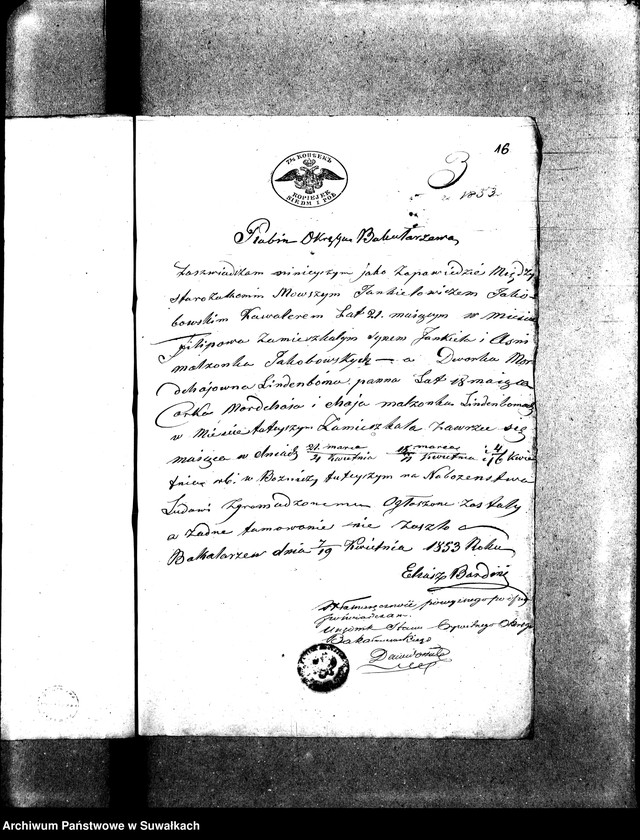 16
7½ КОПѢЕКЪ
KOPIEJEK
SIEDM I PÓŁ
3
1853
Rabin Okręgu Bakałarzewa
Zaświadczam niniejszym jako Zapowiedzie Między
Starozakonnem Mowszym Jankielowiczem Jako-
bowskim Kawalerem Lat 21. maiącym w mieście
Filipowie Zamieszkałym Synem Jankiela i
małżonka Jakobowskych — a Dworka Mor-
dchajowna Lindenbóma panna Lat 18 maiąca
Corka Mordchaja i Chaja małzonka Lindenbomach
w Mieście tutejszym Zamieszkała Zawrzec się
maiąca w dniach 21. marca / 2 Kwietnia marca / Kwietnia i 4/16 Kwie
tnia rb. w Boznicy tutejszym na Nabozenstwa
Ludowi Zgromadzonemu Ogłoszone Zostały
a Zadne tamowanie nie Zaszło
Bakałarzew dnia 7/19 Kwietnia 1853 Roku
Eliasz
własnoręczność powyższego podpisu
poświadczam.
Urzędnik Stanu Cywilnego Okręgu
Bakałarzewskiego
Archiwum Państwowe w Suwałkach